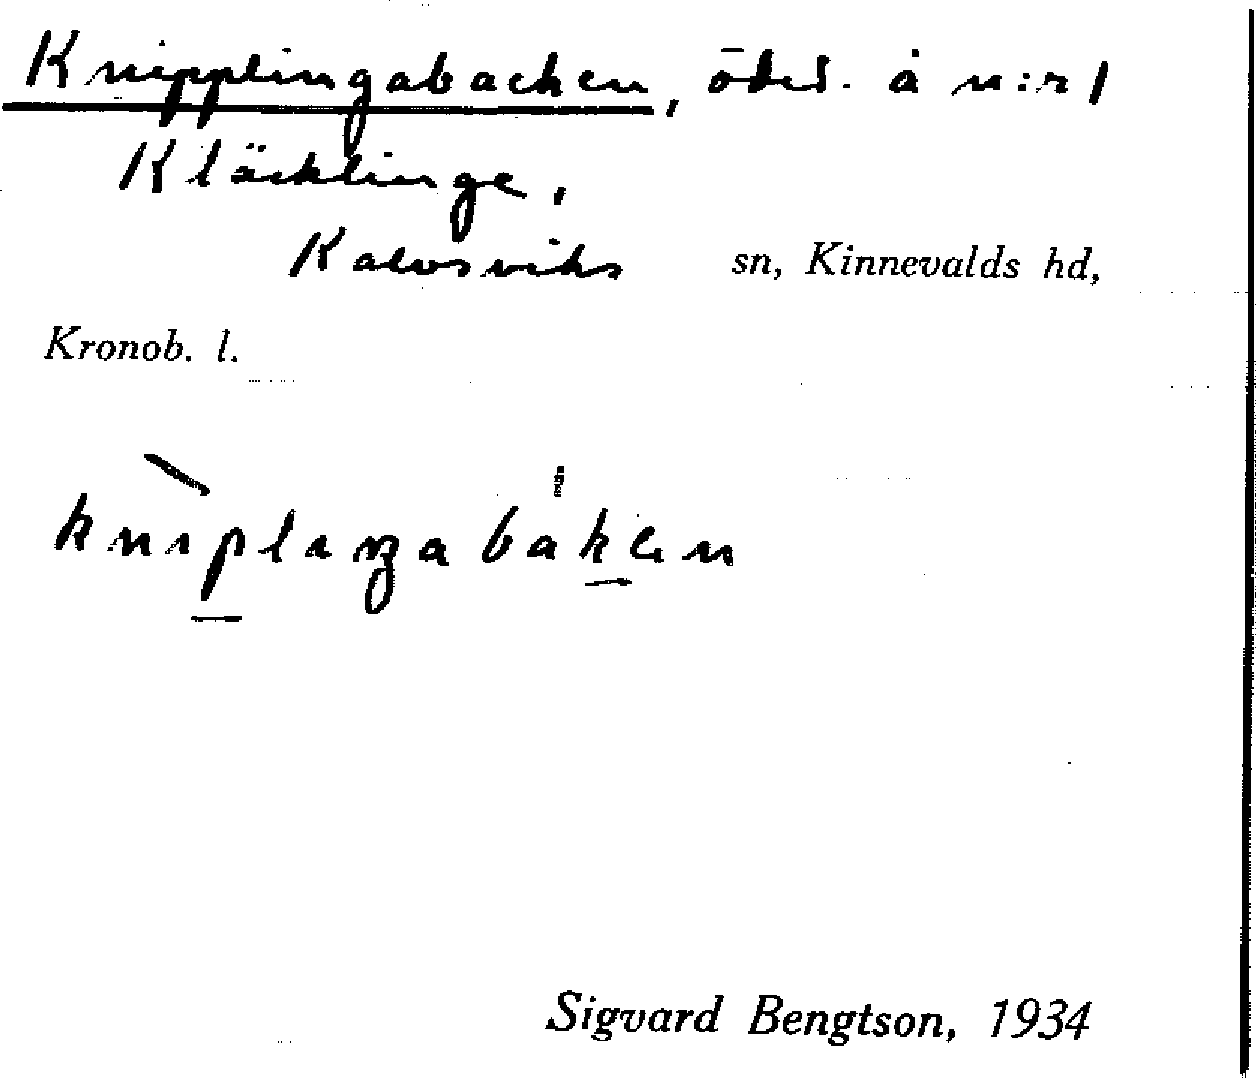 Knipplingabacken, öded. å n:r 1
Kläcklinge,
Kalvsviks sn, Kinnevalds hd,
Kronob. l.
Sigvard Bengtson, 1934